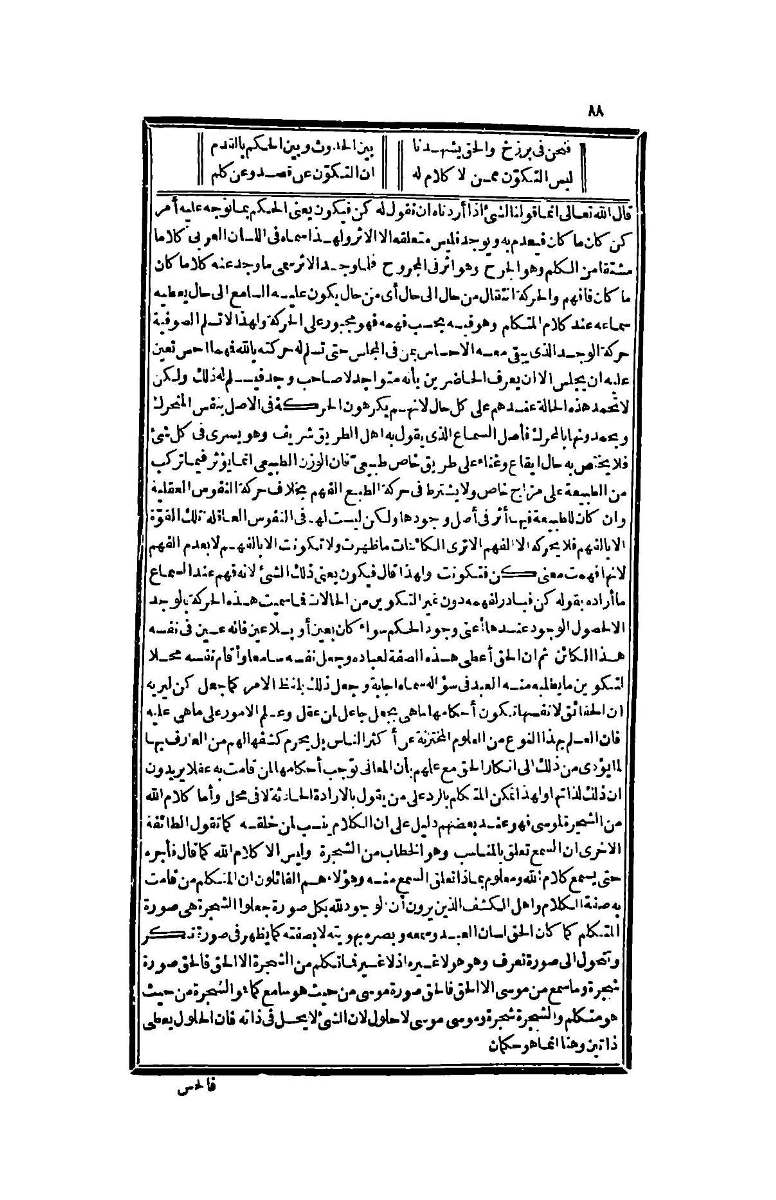 ٨٨
فنحن في برزخ والحق يشهدنا بين الحدوث وبين الحكم بالقدم
ليس التكوّن ممن لا كلام له ان التكوّن عن قصد وعن كلم
قال الله تعالى انما قولنا لشئ اذا أردناه ان نقول له كن فيكون يعنى الحكم بما توجه عليه أمر
كن كان ما كان فيعدم به ويوجد فليس متعلقه الا الاثر ولهذا سماه فى اللسان العربى كلاما
مشتقا من الكلم وهو الجرح وهو اثر فى المجروح فلما وجد الاثر سمى ما وجد عنه كلاما كان
ما كان فافهم والحركة انتقال من حال الى حال أى من حال يكون عليه السامع الى حال يعطيه
سماعه عند كلام المتكلم وهو فيه بحسب فهمه فهو مجبور على الحركة ولهذا لا تسلم الصوفية
حركة الوجد الذى يبقى معه الاحساس بمن فى المجلس حتى تسلم له حركته بالله فهما احس تعين
عليه ان يجلس الا ان يعرف الحاضرين بأنه متواجد لا صاحب وجد فيسلم له ذلك ولكن
لا تحمد هذه الحالة عندهم على كل حال لانهم يكرهون الحركة فى الاصل بنفس المتحرك
ويحمدونها بالمحرك فأصل السماع الذى يقول به اهل الطريق شريف وهو يسرى فى كل شئ
فلا يختص به حال ايقاع وغناء على طريق خاص طبيعى فان الوزن الطبيعى انما يؤثر فيما تركب
من الطبيعة على مزاج خاص ولا يشترط فى حركة الطبع الفهم بخلاف حركة النفوس العقلية
وان كان للطبيعة فيها أثر فى أصل وجودها ولكن ليست لها فى النفوس العاقلة تلك القوّة
الا بالفهم فلا يحركه الا الفهم الا ترى الكائنات ما ظهرت ولا تكونت الا بالفهم لا بعدم الفهم
لانها فهمت معنى كن فتكونت ولهذا قال فيكون يعنى ذلك الشئ لانه فهم عند السماع
ما أراده بقوله كن فبادر لفهمه دون غير التكوين من الحالات فما سميت هذه الحركة بالوجد
الا لحصول الوجود عندها أعنى وجود الحكم سواء كان بعين أو بلا عين فانه عين فى نفسه
هذا الكائن ثم ان الحق أعطى هذه الصفة لعباده وجعل نفسه سامعا وأقام نفسه محلا
لتكوين ما يطلبه منه العبد فى سؤاله سماه اجابة وجعل ذلك بلفظ الامر كما جعل كن ليريه
ان الحقائق لا نفسها تكون أحكامها ما هى بجعل جاعل لمن عقل وعلم الامور على ما هى عليه
فان العلم بهذا النوع من العلوم المختزنة عن أكثر الناس بل يحرم كشفها لهم من العارف بها
لما يؤدى من ذلك الى انكار الحق مع علمهم بأن المعانى توجب أحكامها لمن قامت به عقلا يريدون
ان ذلك لذاتها ولهذا تمكن المتكلم بالرد على من يقول بالارادة الحادثة لا فى محل وأما كلام الله
من الشجرة لموسى فهو عند بعضهم دليل على ان الكلام ينسب لمن خلقه كما تقول الطائفة
الاخرى ان السمع تعلق بالمناسب وهو الخطاب من الشجرة وليس الا كلام الله كما قال فأجره
حتى يسمع كلام الله ومعلوم بماذا تعلق السمع منه وهؤلاء هم القائلون ان المتكلم من قامت
به صفة الكلام واهل الكشف الذين يرون أن الوجود لله بكل صورة جعلوا الشجرة هى صورة
المتكلم كما كان الحق لسان العبد وسمعه وبصره بهويته لا بصفته كما يظهر فى صورة تنكر
ويتحول الى صورة تعرف وهو هو لا غيره اذ لا غير فما تكلم من الشجرة الا الحق فالحق صورة
شجرة وما سمع من موسى الا الحق فالحق صورة موسى من حيث هو سامع كما هو الشجرة من حيث
هو متكلم والشجرة شجرة وموسى موسى لا حلول لان الشئ لا يحل فى ذاته فان الحلول يعطى
ذاتين وهنا انما هو حكمان
فالحس